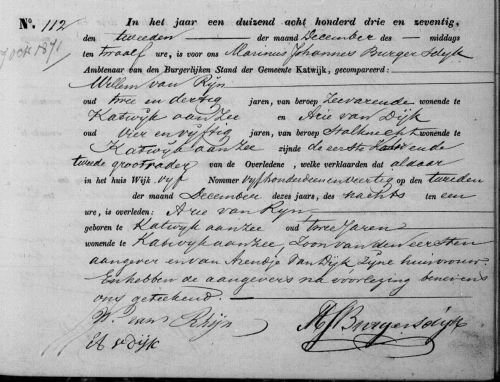 No. 112 In het jaar een duizend acht honderd drie en zeventig,
den tweeden der maand December des middags
ten twaalf ure, is voor ons Marinus Johannes Burgersdijk
Ambtenaar van den Burgerlijken Stand der Gemeente Katwijk, gecompareerd:
Willem van Rijn
oud twee en dertig jaren, van beroep Zeevarende wonende te
Katwijk aan Zee en Arie van Dijk
oud vier en vijftig jaren, van beroep Stalknecht wonende te
Katwijk aan Zee zijnde de eerste en de
tweede grootvader van de Overledene, welke verklaarden dat aldaar
in het huis Wijk vyf Nommer vyfhonderdeenenveertig op den tweeden
der maand December dezes jaars, des nachts ten een
ure, is overleden: Arie van Ryn
geboren te Katwyk aan zee oud twee Jaren
wonende te Katwyk aan zee, Zoon van den Eersten
aangever en van Arendje van Dijk zyne huisvrouw.
En hebben de aangevers na voorlezing benevens
ons geteekend.
W. van Rhijn MJBurgersdijk